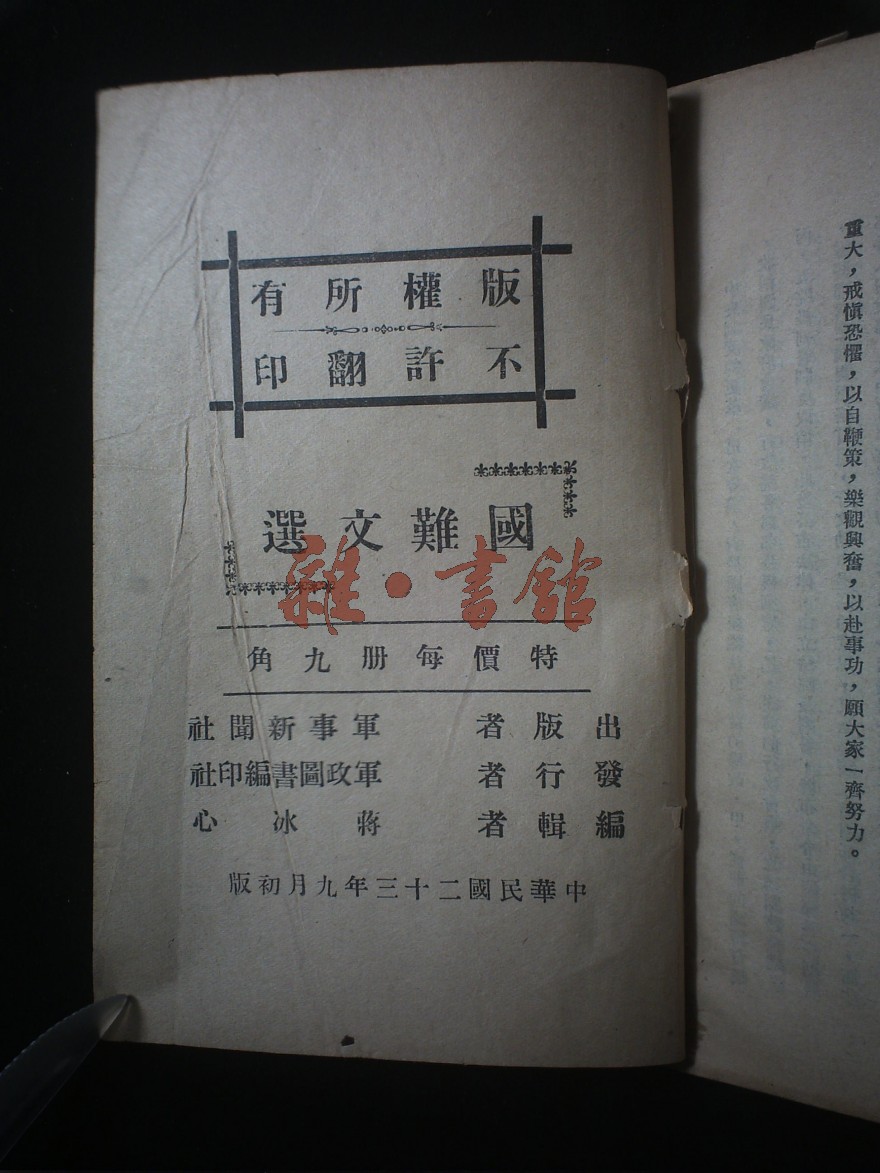 重大，戒慎恐懼，以自鞭策，樂觀興奮，以赴事功，願大家一齊努力。
版權所有
不許翻印
國難文選
雜·書館
特價每册九角
出版者 軍事新聞社
發行者 軍政圖書編印社
編輯者 蔣冰心
中華民國二十三年九月初版